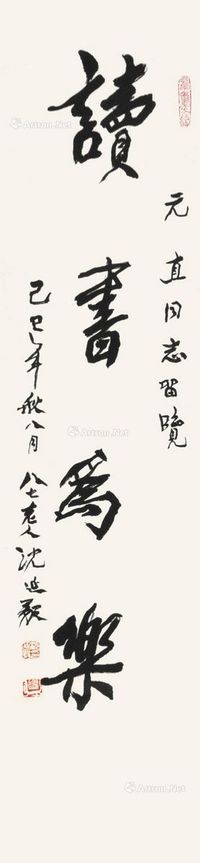 元直同志留覽
讀書為樂
己巳年秋八月 八七老人沈延毅
Artron.Net
Artron.Net
Artron.Net
Artron.Net